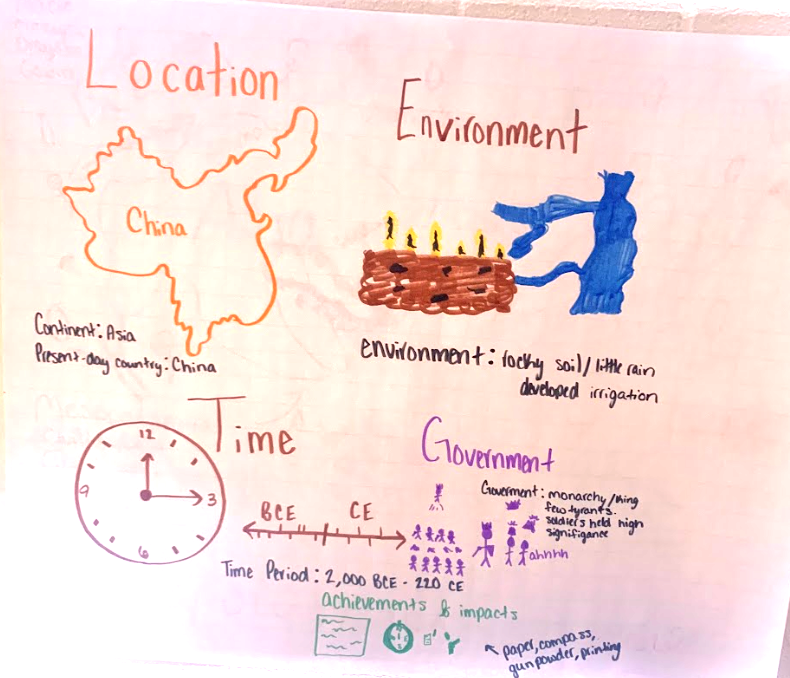 Location
China
Continent: Asia
Present-day country: China
Environment
environment: rocky soil/little rain
developed irrigation
Time
12
3
6
9
BCE
CE
Time Period: 2,000 BCE - 220 CE
Government
Goverment: monarchy/king
few tyrants.
soldiers held high
signifigance
ahhhh
achievements & impacts
paper, compass,
gunpowder, printing